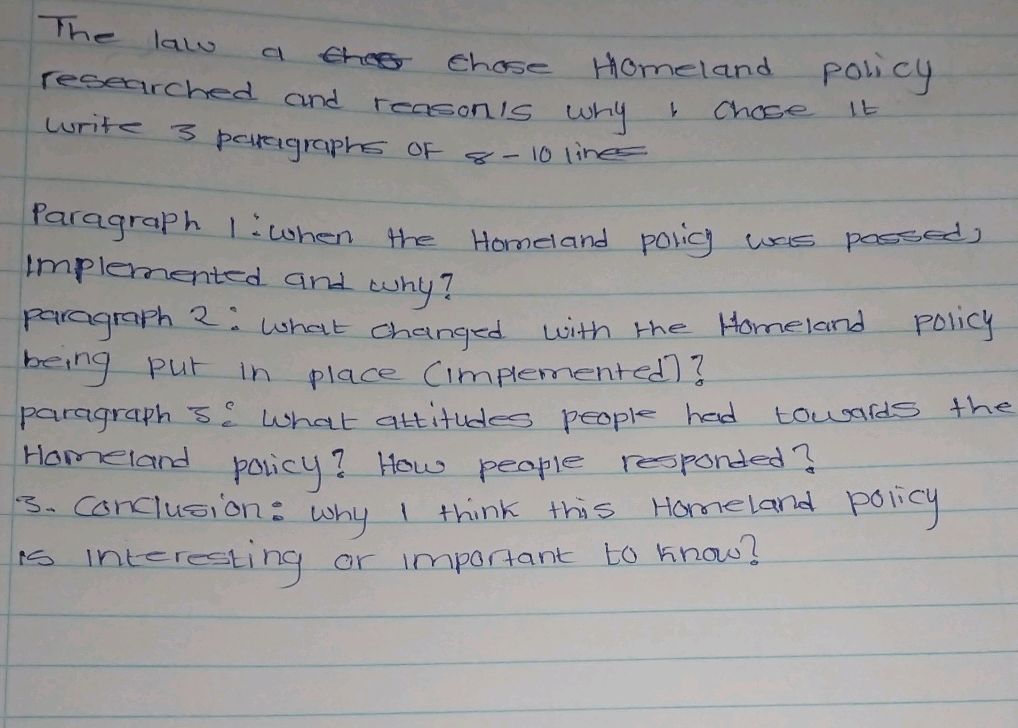 The law a chose Homeland policy
researched and reason/s why I chose it
write 3 paragraphs of 8-10 lines
Paragraph 1: when the Homeland policy was passed,
implemented and why?
paragraph 2: what changed with the Homeland policy
being put in place (implemented)?
paragraph 3: what attitudes people had towards the
Homeland policy? How people responded?
3. Conclusion: why I think this Homeland policy
is interesting or important to know?